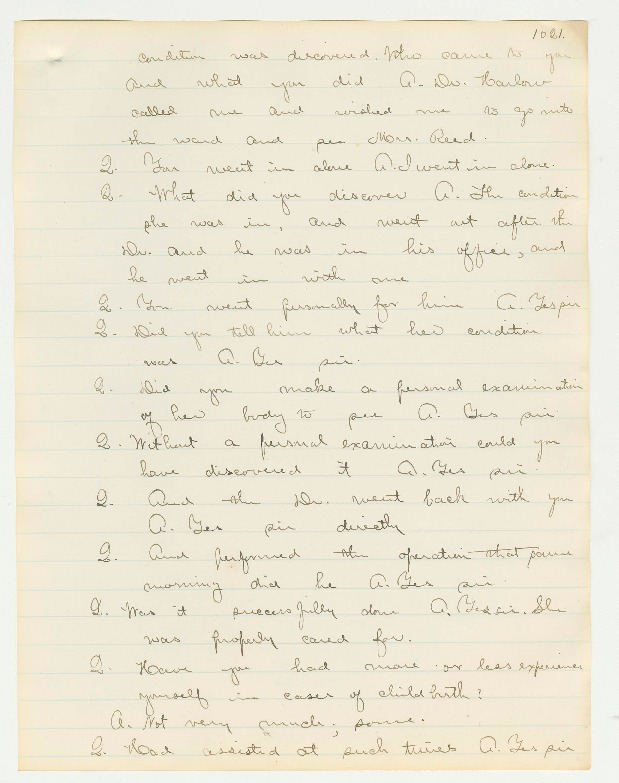 1021.
condition was discovered. Who came to you
and what you did A. Dr. Harlow
called me and wished me to go into
the ward and see Mrs. Reed.
Q. You went in alone A. I went in alone.
Q. What did you discover A. The condition
she was in, and went out after the
Dr. and he was in his office, and
he went in with me
Q. You went personally for him A. Yes sir
Q. Did you tell him what her condition
was A. Yes sir.
Q. Did you make a personal examination
of her body to see A. Yes sir
Q. Without a personal examination could you
have discovered it A. Yes sir.
Q. And the Dr. went back with you
A. Yes sir directly
Q. And performed the operation that same
morning did he A. Yes sir.
Q. Was it successfully done A. Yes sir. She
was properly cared for.
Q. Have you had more or less experience
yourself in cases of childbirth?
A. Not very much, some.
Q. Had assisted at such times A. Yes sir